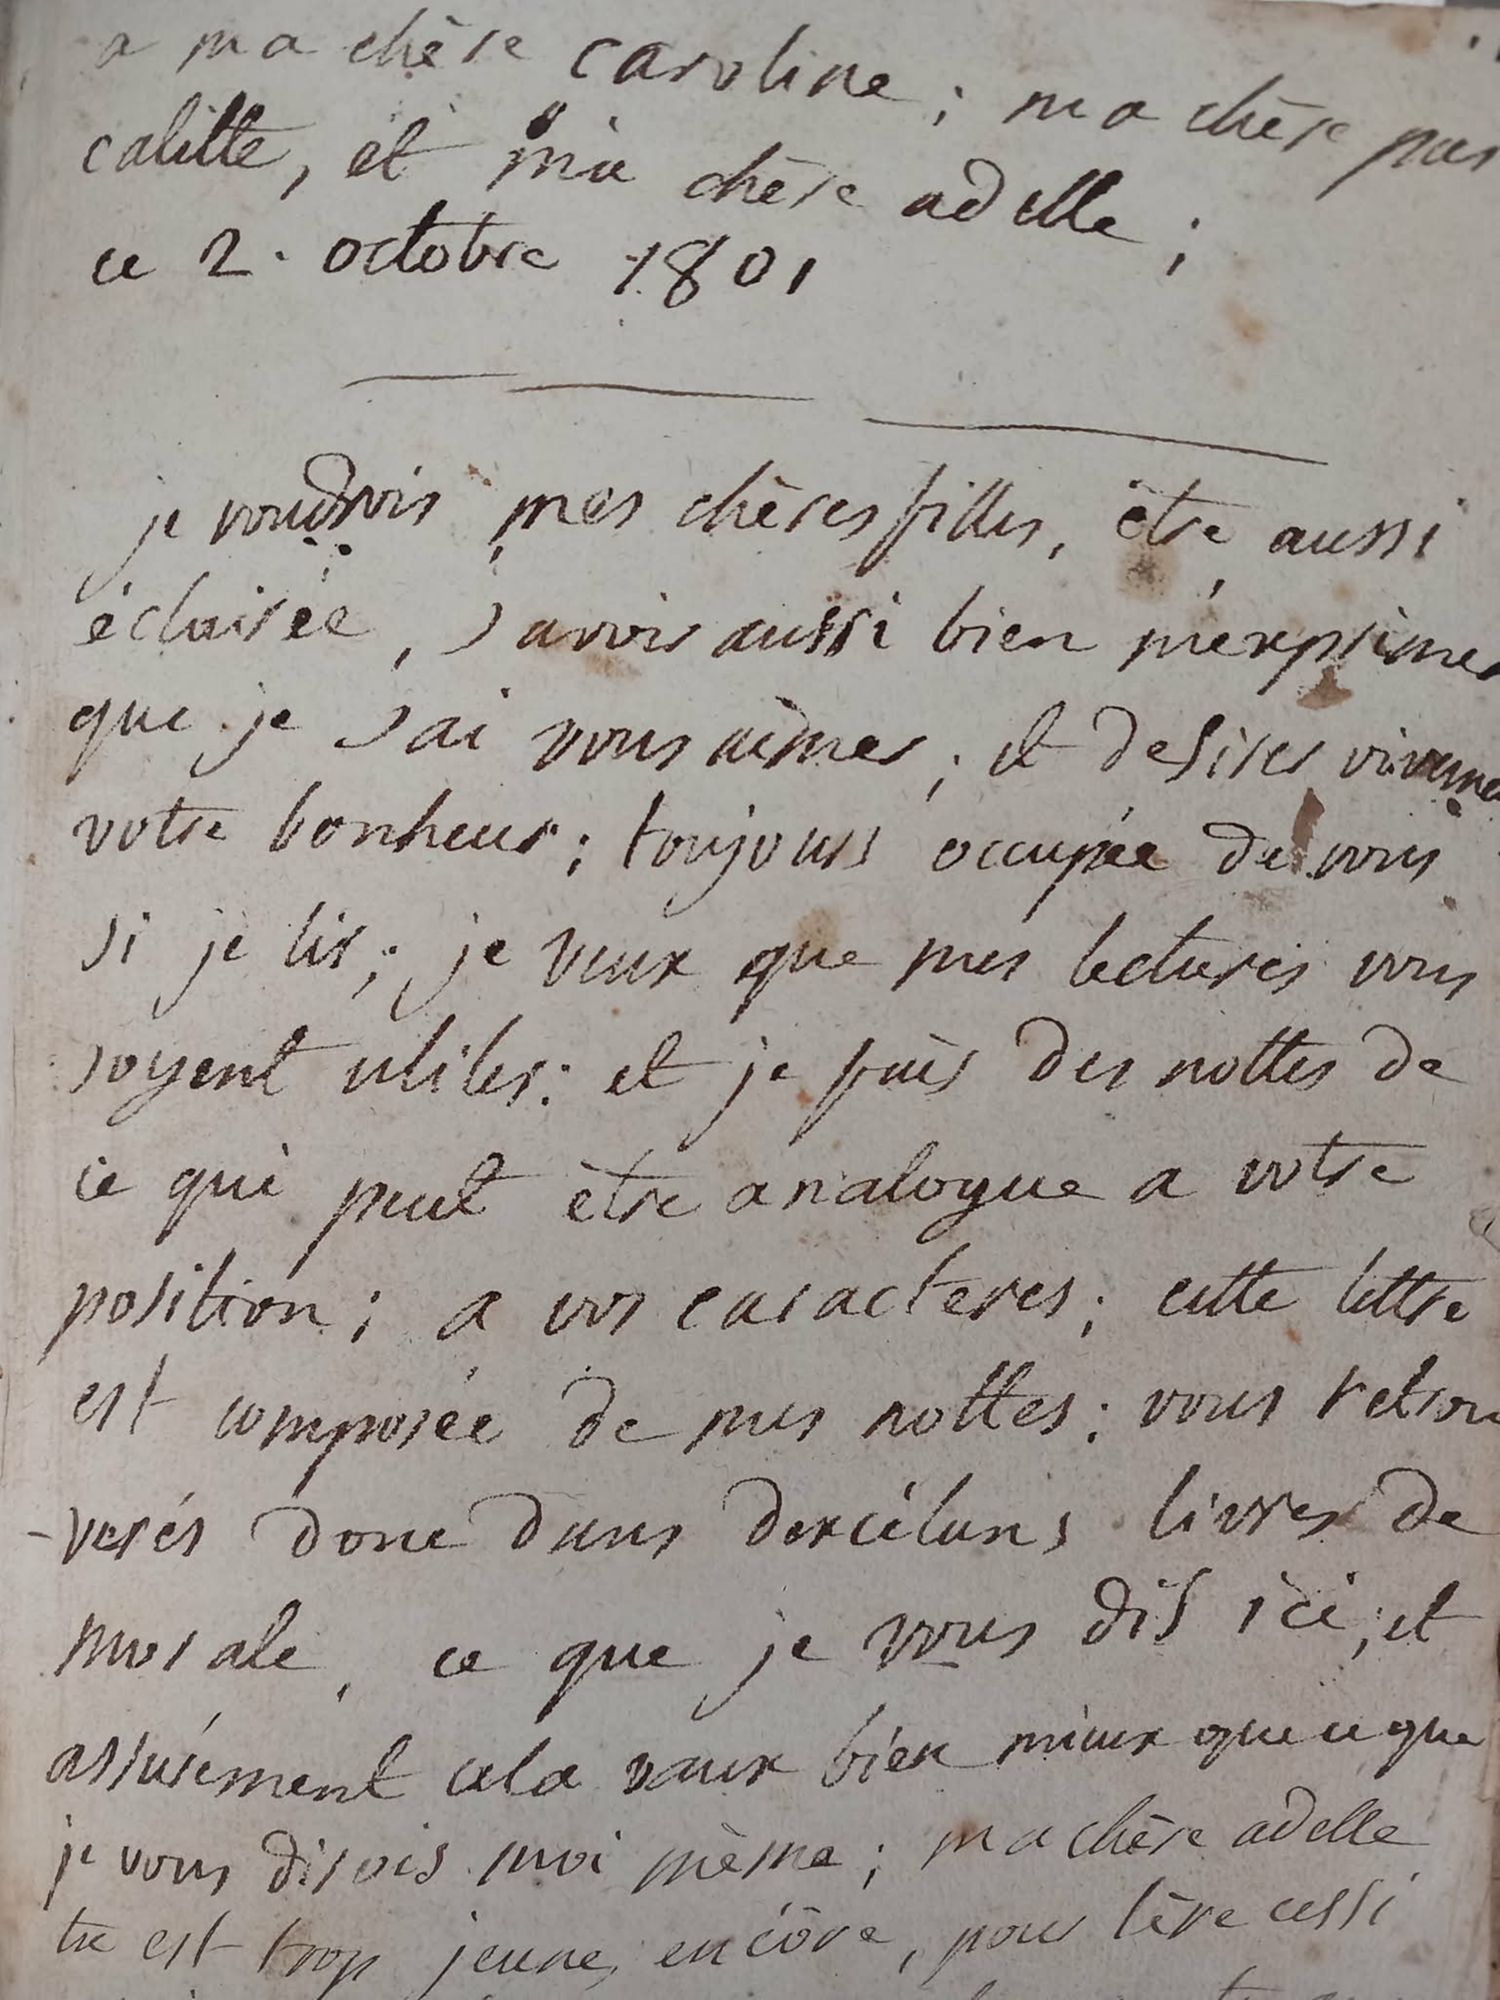 a ma chère caroline ; ma chère pas
calitte, et ma chère adelle ;
ce 2. octobre 1801
je voudrois mes chères filles, être aussi
éclairée, savoir aussi bien m'exprimer
que je sai vous aimer ; et desirer viveme
votre bonheur ; toujours occupée de vous
si je lis ; je veux que mes lectures vous
soyent utiles : et je fais des nottes de
ce qui peut être analogue a votre
position ; a vos caracteres ; cette lettre
est composée de mes nottes : vous retrou
-verés donc dans dexcélans livres de
morale, ce que je vous dis ici, et
assurément cela vaux bien mieux que ce que
je vous disois moi même ; ma chère adelle
tu est trop jeune, encôre, pour lire cessi